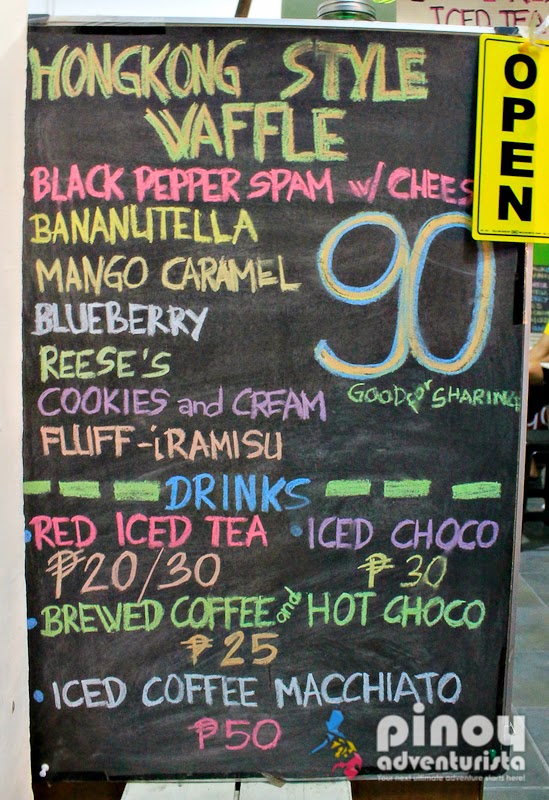 ICED TEA
HONGKONG STYLE
WAFFLE
OPEN
BLACK PEPPER SPAM w/ CHEES
BANANUTELLA
MANGO CARAMEL
90
BLUEBERRY
REESE'S
GOOD for SHARING
COOKIES and CREAM
FLUFF-iRAMISU
DRINKS
• RED ICED TEA • ICED CHOCO
₱20/30 ₱30
• BREWED COFFEE and HOT CHOCO
₱25
• ICED COFFEE MACCHIATO
₱50
pinoy
adventurista
Your next ultimate adventure starts here!